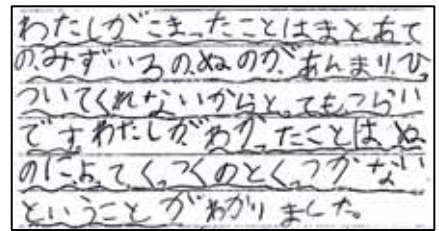 わたしがこまったことはまとあて
の、みずいろの、ぬのが、あんまり、ひっ
ついてくれないからと、てもつらい
です。わたしが、わかったことは、ぬ
のによって、くっつくのとくっつかない
ということがわかりました。